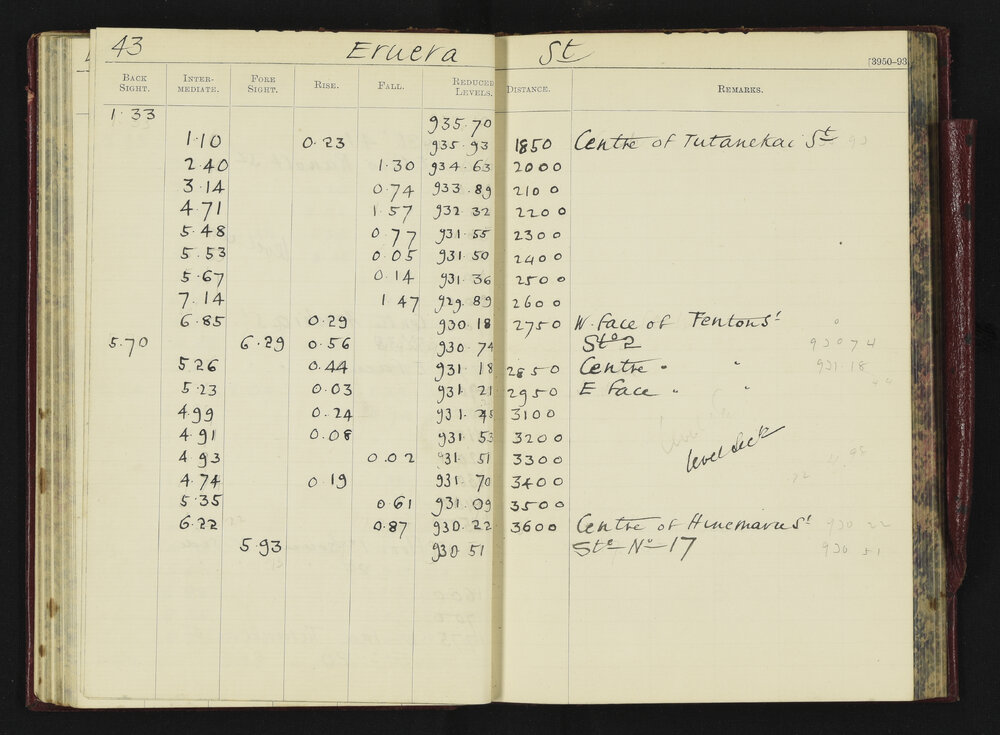 43 Eruera St
[3950-93
BACK SIGHT. INTER-MEDIATE. FORE SIGHT. RISE. FALL. REDUCED LEVELS. DISTANCE. REMARKS.
1.33 935.70
1.10 0.23 935.93 1850 Centre of Tutanekai St
2.40 1.30 934.63 2000
3.14 0.74 933.89 2100
4.71 1.57 932.32 2200
5.48 0.77 931.55 2300
5.53 0.05 931.50 2400
5.67 0.14 931.36 2500
7.14 1.47 929.89 2600
6.85 0.29 930.18 2750 W. face of Fenton St
5.70 6.29 0.56 930.74 Stn 2 93074
5.26 0.44 931.18 2850 Centre " " 931.18
5.23 0.03 931.21 2950 E face " "
4.99 0.24 931.45 3100
4.91 0.08 931.53 3200
4.93 0.02 931.51 3300
4.74 0.19 931.70 3400
5.35 0.61 931.09 3500
6.22 0.87 930.22 3600 Centre of Hinemaru St 930 22
5.93 930.51 Stn No 17 930 51
level